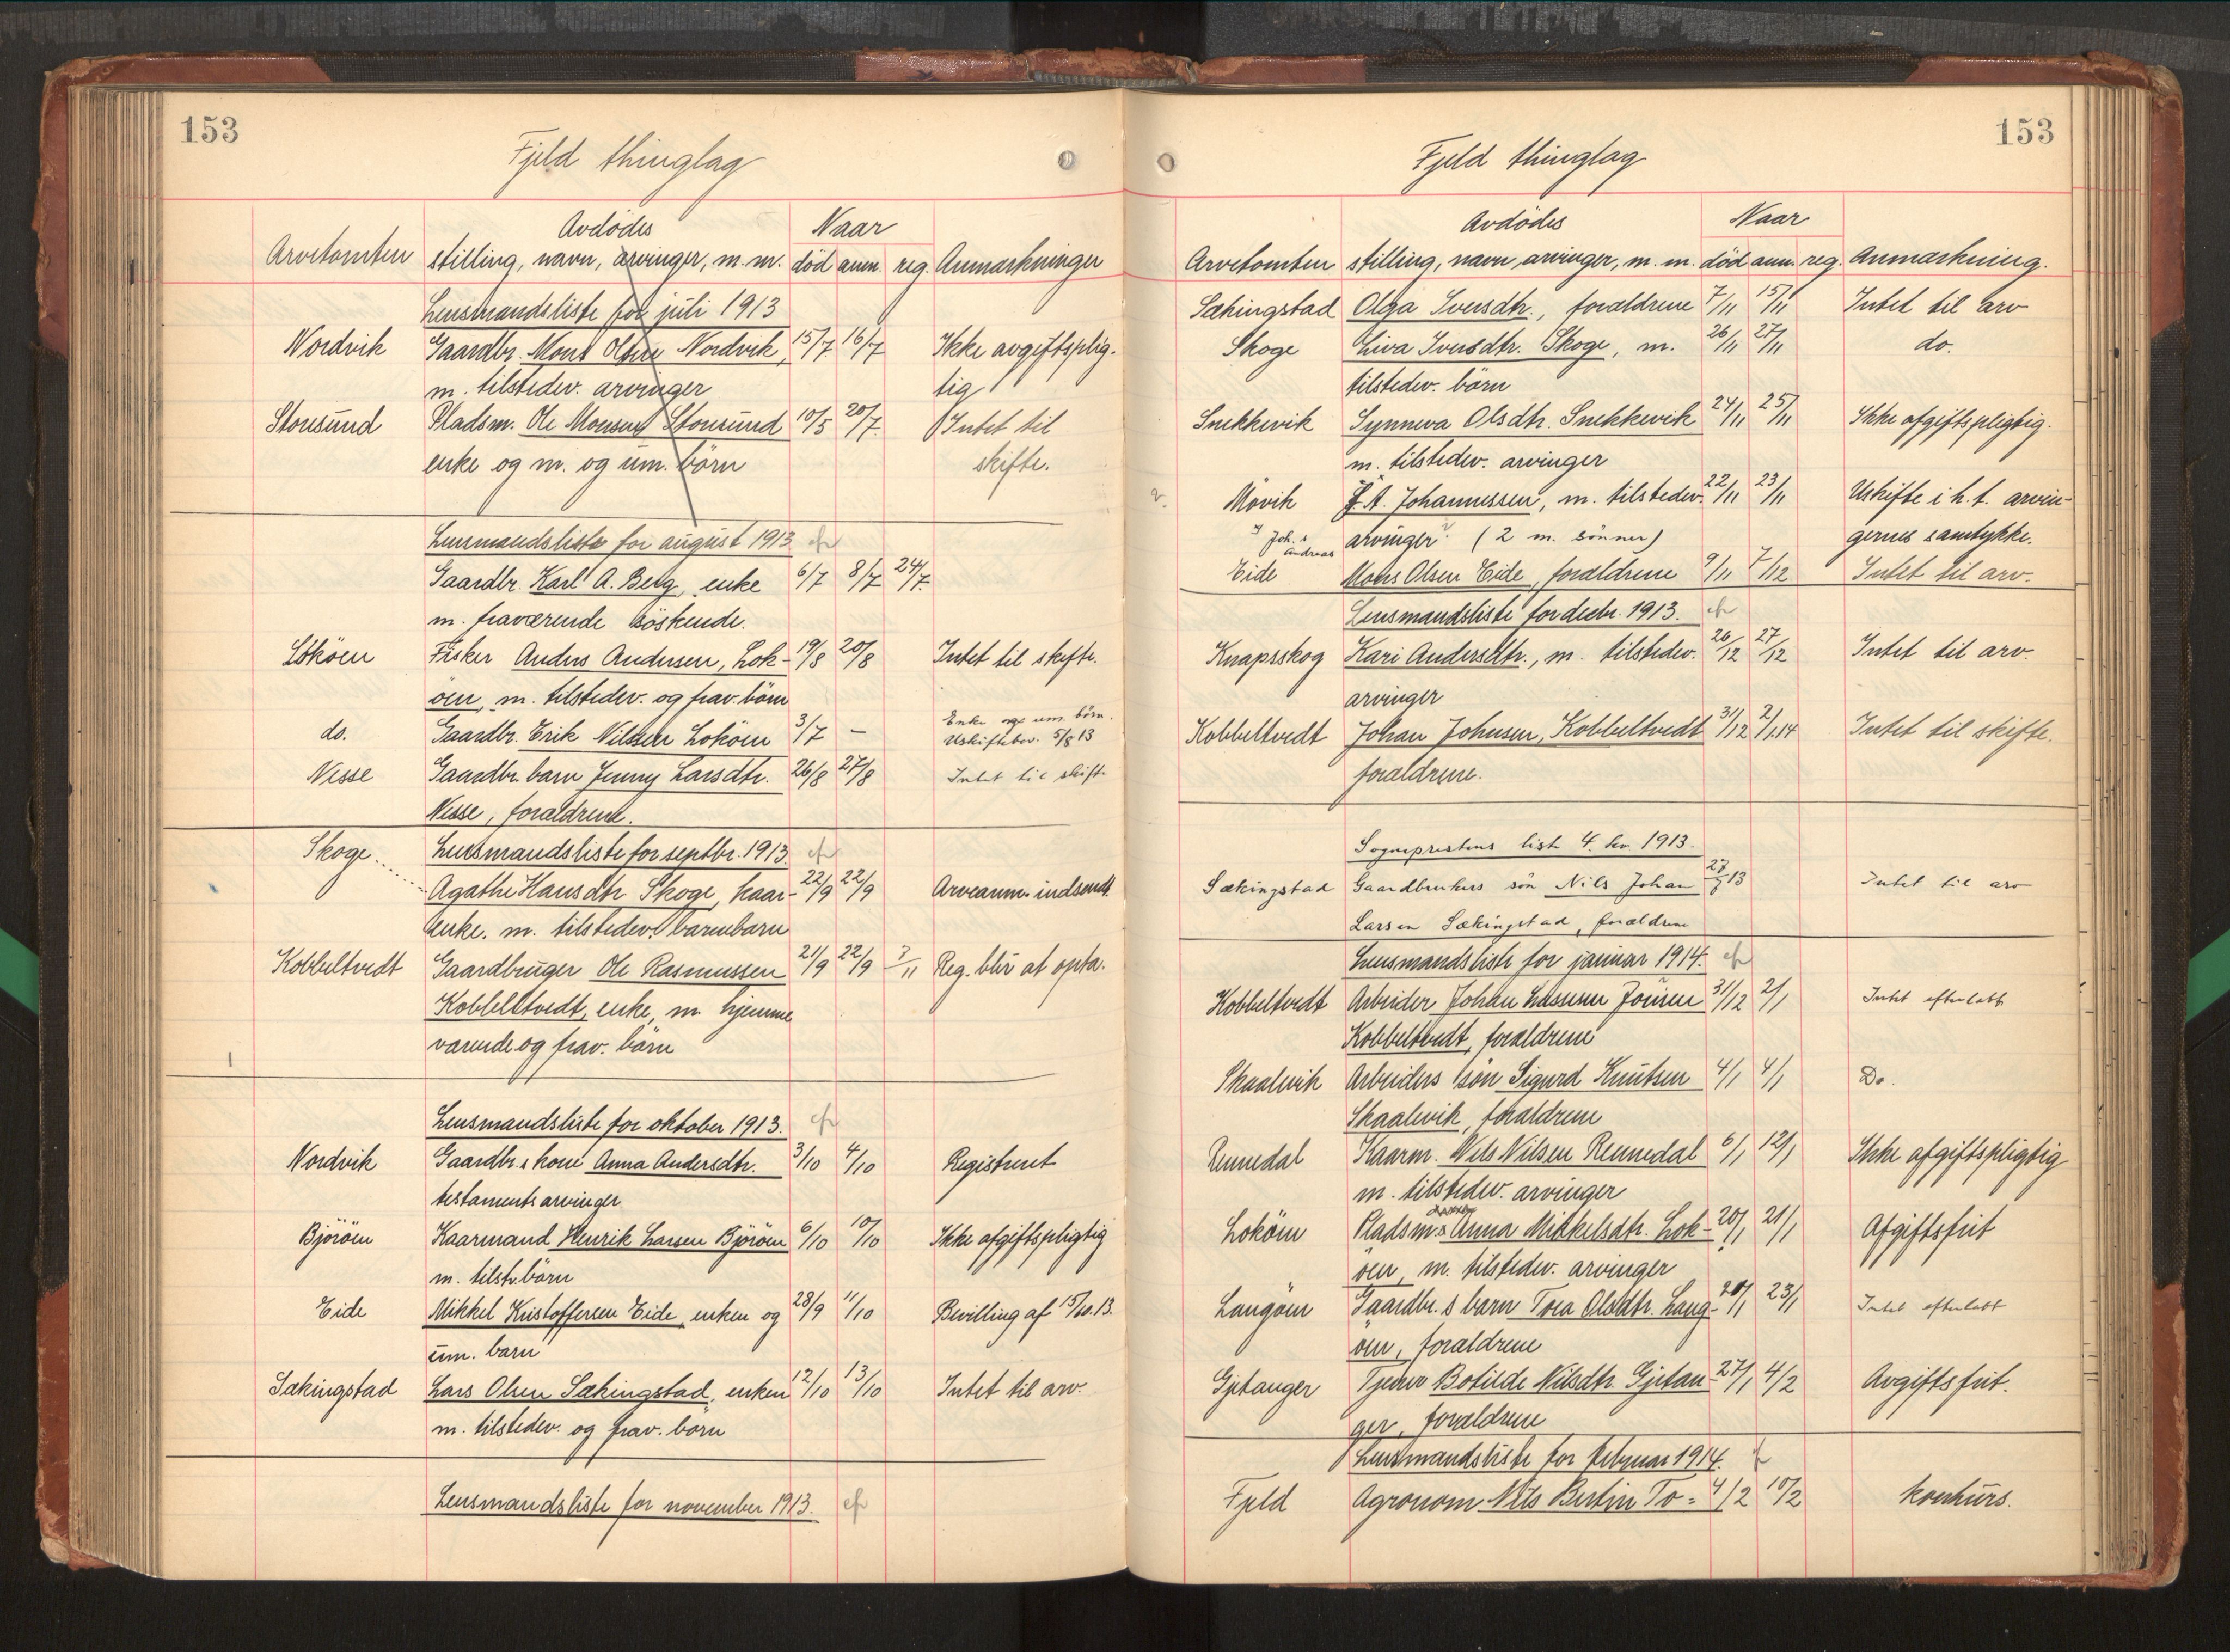 153
Fjeld thinglag
Arvetomten Avdødes stilling, navn, arvinger, m. m. Naar død anm. reg. Anmærkninger
Lensmandsliste for juli 1913
Nordvik Gaardbr. Mons Olsen Nordvik, 15/7 16/7 Ikke avgiftsplig-
m. tilstedev. arvinger tig
Storesund Pladsm. Ole Monsen Storesund 10/5 20/7. Intet til
enke og m. og um. børn skifte.
Lensmandsliste for august 1913
Gaardbr. Karl A. Berg, enke 6/7 8/7 24/7.
m. fraværende søskende.
Løkøen Fisker Anders Andersen, Løk- 19/8 20/8 Intet til skifte.
øen, m. tilstedev. og frav. børn
do. Gaardbr. Erik Nilssen Løkøen 3/7 – Enke og um. børn.
Uskiftebev. 5/8 13
Nesse Gaardbr. barn Jenny Larsdtr. 26/8 27/8 Intet til skifte
Nesse, forældrene.
Skoge Lensmandsliste for septbr. 1913.
Agathe Hansdtr. Skoge, kaar- 22/9 22/9 Arveanm. indsendt.
enke. m. tilstedev. barnebarn
Kobbeltvedt Gaardbruger Ole Rasmussen 21/9 22/9 7/11 Reg. blir at opta.
Kobbeltvedt, enke, m. hjemme
værende og frav. børn
Lensmandsliste for oktober 1913.
Nordvik Gaardbr.s kone Anna Andersdtr. 3/10 4/10 Registreret
testamentsarvinger
Bjørøen Kaarmand Henrik Larsen Bjørøen 6/10 10/10 Ikke afgiftspligtig
m. tilst. børn
Eide Mikkel Kristoffersen Eide, enken og 28/9 11/10 Bevilling af 15/10. 13.
um. barn
Sækingstad Lars Olsen Sækingstad, enken 12/10 13/10 Intet til arv.
m. tilstedev. og frav. børn
Lensmandsliste for november 1913.
153
Fjeld thinglag
Arvetomten Avdødes stilling, navn, arvinger, m. m. Naar død anm. reg. Anmærkning.
Sækingstad Olga Iversdtr., forældrene 7/11 15/11 Intet til arv
Skoge Liva Iversdtr. Skoge, m. 26/11 27/11 do.
tilstedev. børn
Snekkevik Synneva Olsdtr. Snekkevik 24/11 25/11 Ikke afgiftspligtig.
m. tilstedev. arvinger
Møvik J. A. Johannessen, m. tilstedev. 22/11 23/11 Uskifte i h. t. arvin-
Joh. & Andreas arvinger (2 m. sønner) gernes samtykke.
Eide Mons Olsen Eide, forældrene 9/11 7/12 Intet til arv.
Lensmandsliste for decbr. 1913.
Knapsskog Kari Andersdtr., m. tilstedev. 26/12 27/12 Intet til arv.
arvinger
Kobbeltvedt Johan Johnsen, Kobbeltvedt 31/12 2/1.14 Intet til skifte.
forældrene.
Sogneprestens liste 4. kv 1913.
Sækingstad Gaardbrukers søn Nils Johan 27/7 13 Intet til arv
Larsen Sækingstad, forældrene
Lensmandsliste for januar 1914.
Kobbeltvedt Arbeider Johan Lassesen Jonsen 31/12 2/1 Intet efterlatt
Kobbeltvedt, forældrene
Skaalevik Arbeiders søn Sigurd Knutsen 4/1 4/1 Do.
Skaalevik, forældrene
Rennedal Kaarm. Nils Nilsen Rennedal 6/1 12/1 Ikke afgiftspligtig
m. tilstedev. arvinger
Løkøen Pladsm.s Anna Mikkelsdtr. Løk- 20/1 21/1 Afgiftsfrit
øen, m. tilstedev. arvinger
Langøen Gaardbr.s barn Tora Olsdtr. Lang- 20/1 23/1 Intet efterlatt
øen, forældrene
Gjetanger Tjener Botilde Nilsdtr. Gjetan- 27/1 4/2 Avgiftsfrit.
ger, forældrene
Lensmandsliste for februar 1914.
Fjeld Agronom Nils Bertin To= 4/2 10/2 konkurs.